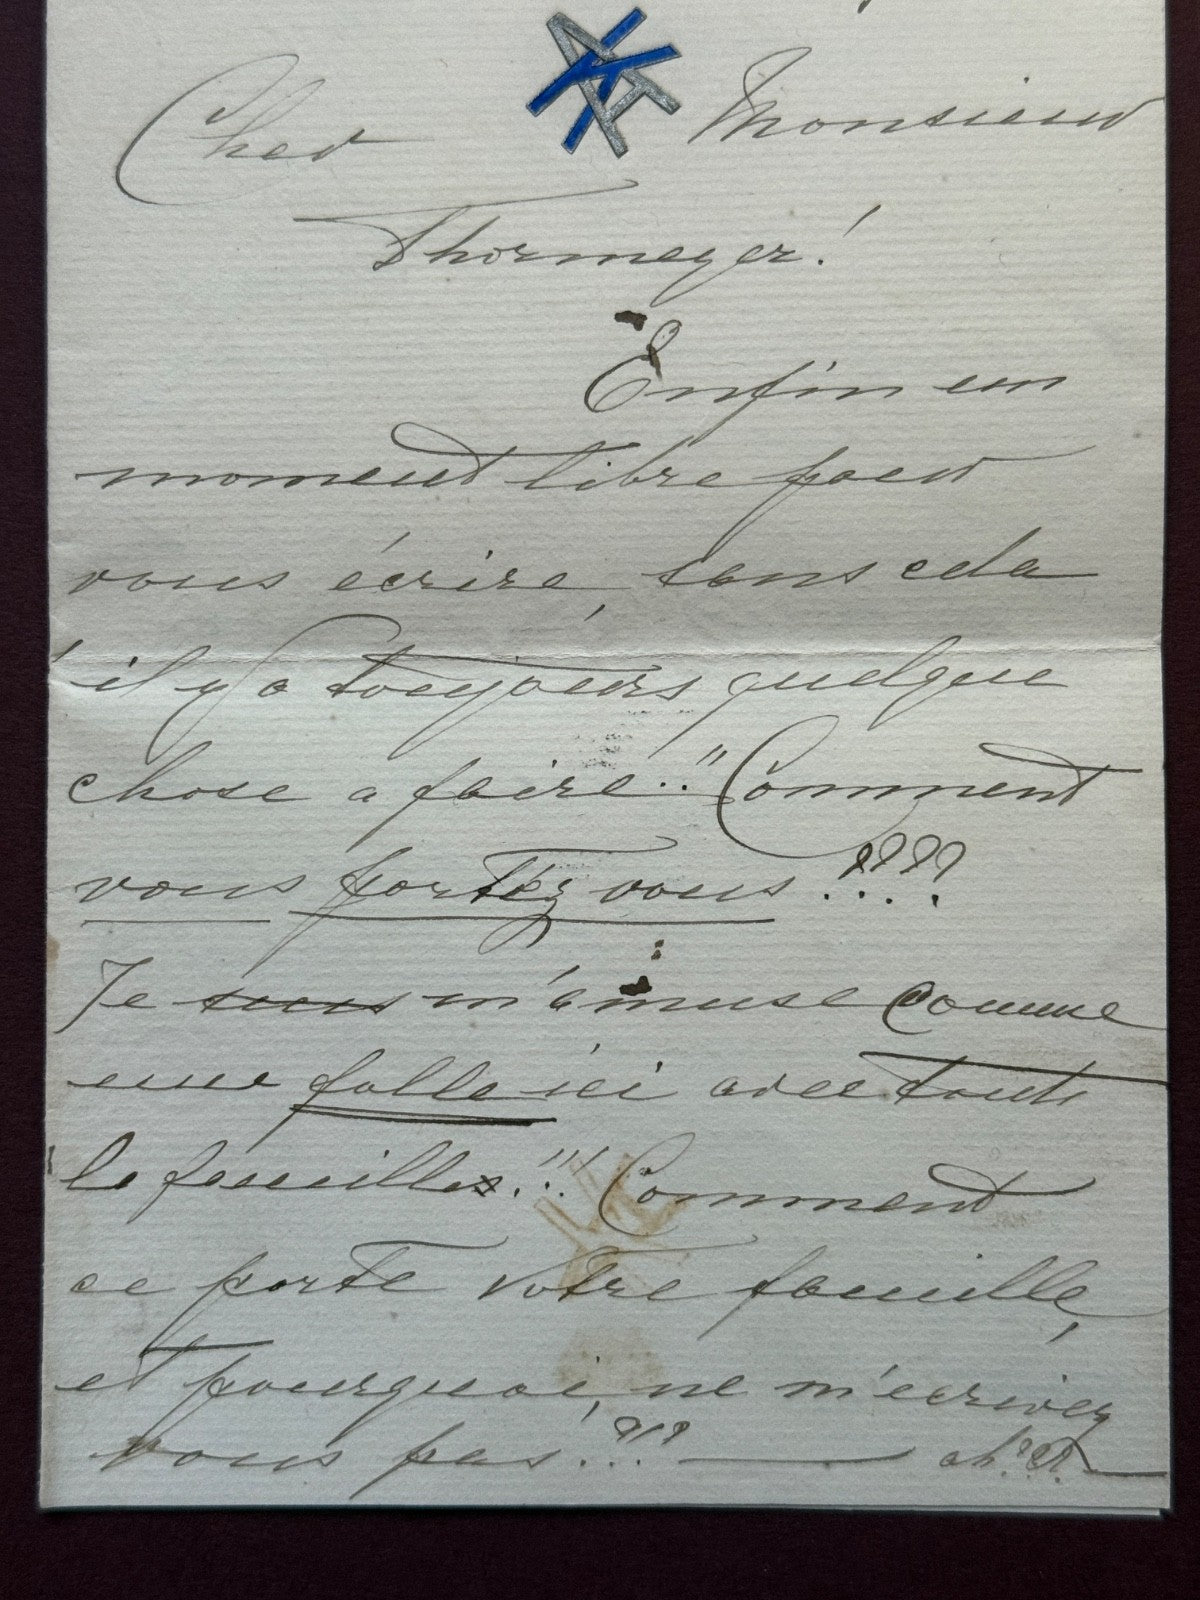 Cher Monsieur
Thormeyer!
Enfin un
moment libre pour
vous écrire, sans cela
il y a toujours quelque
chose a faire.." Comment
vous portéz vous ????
Je suis m'amuse comme
une folle ici avec toute
la famille!!! Comment
ce porte votre famille,
et pourquoi, ne m'ecrivez
vous pas???